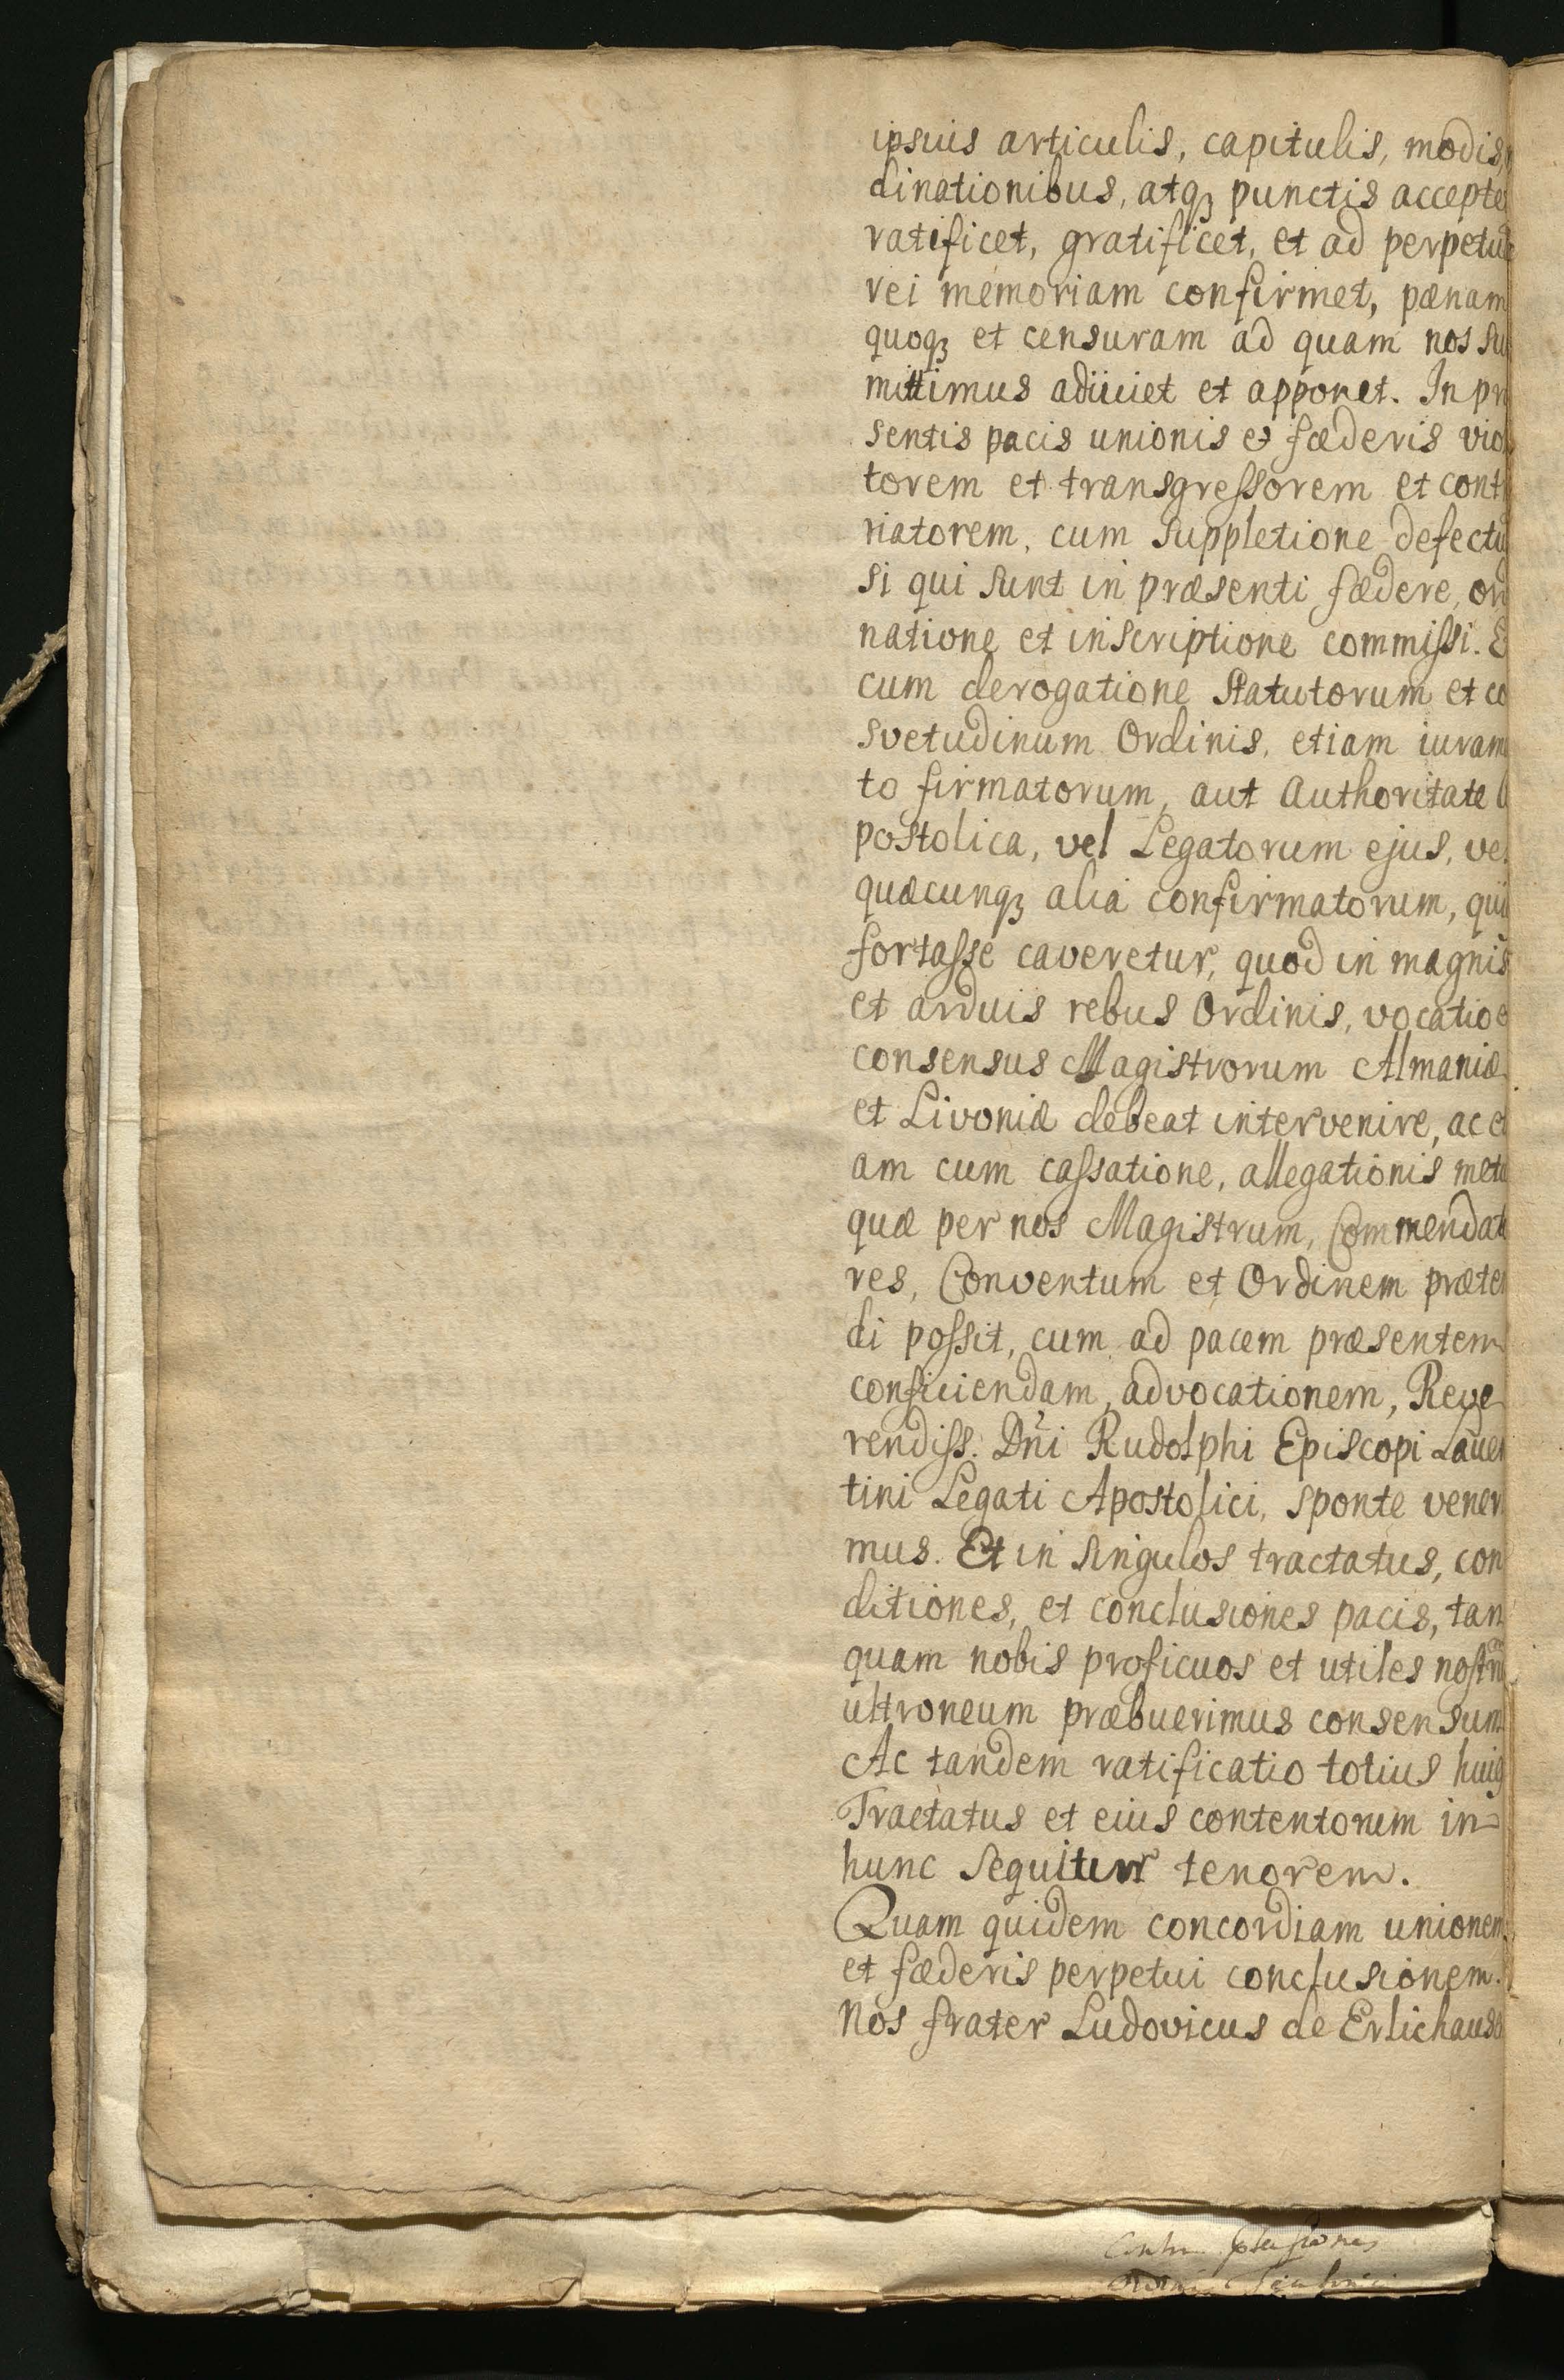 ipsius articulis, capitulis, modis,
dinationibus, atqꝫ punctis accepte
ratificet, gratificet, et ad perpetua
rei memoriam confirmet, pœnam
quoqꝫ et censuram ad quam nos su
mittimus adiiciet et apponet. In præ
sentis pacis unionis et fœderis viol
torem et transgreſsorem et cont
riatorem, cum suppletione defectu
si qui sunt in præsenti fœdere, ord
natione et inscriptione commiſsi. E
cum derogatione statutorum et co
svetudinum Ordinis, etiam iuram
to firmatorum, aut Authoritate A
postolica, vel Legatorum ejus, vel
quæcunqꝫ alia confirmatorum, qui
fortaſse caveretur, quod in magnis
et arduis rebus Ordinis, vocatio e
consensus Magistrorum Almaniæ
et Livoniæ debeat intervenire, ac e
am cum caſsatione, allegationis met
quæ per nos Magistrum, Commendat
res, Conventum et Ordinem præten
di poſsit, cum ad pacem præsentem
conficiendam, advocationem, Reve
rendiſs. Dn̄i Rudolphi Episcopi Laven
tini Legati Apostolici, sponte vener
mus. Et in singulos tractatus, con
ditiones, et conclusiones pacis, tan
quam nobis proficuos et utiles nostrū
ultroneum præbuerimus consensum
Ac tandem ratificatio totius huig
Tractatus et eius contentorum in
hunc sequitur tenorem.
Quam quidem concordiam unionem
et fœderis perpetui conclusionem.
Nos frater Ludovicus de Erlichauso